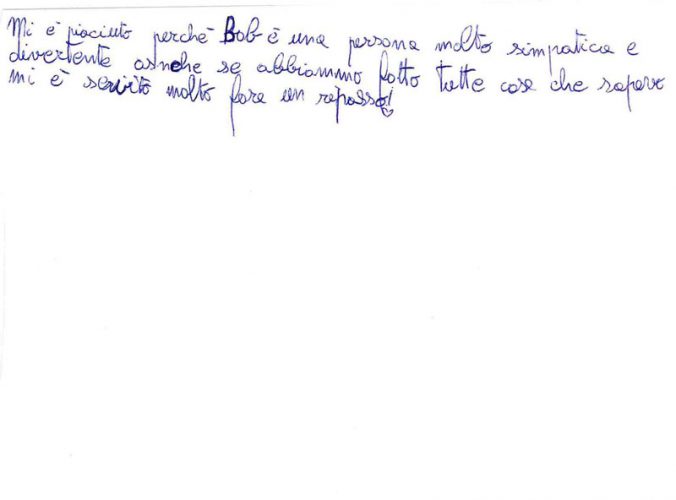 Mi è piaciuto perchè Bob è una persona molto simpatica e
divertente asnche se abbiammo fatto tutte cose che sapevo
mi è servito molto fare un repasso!